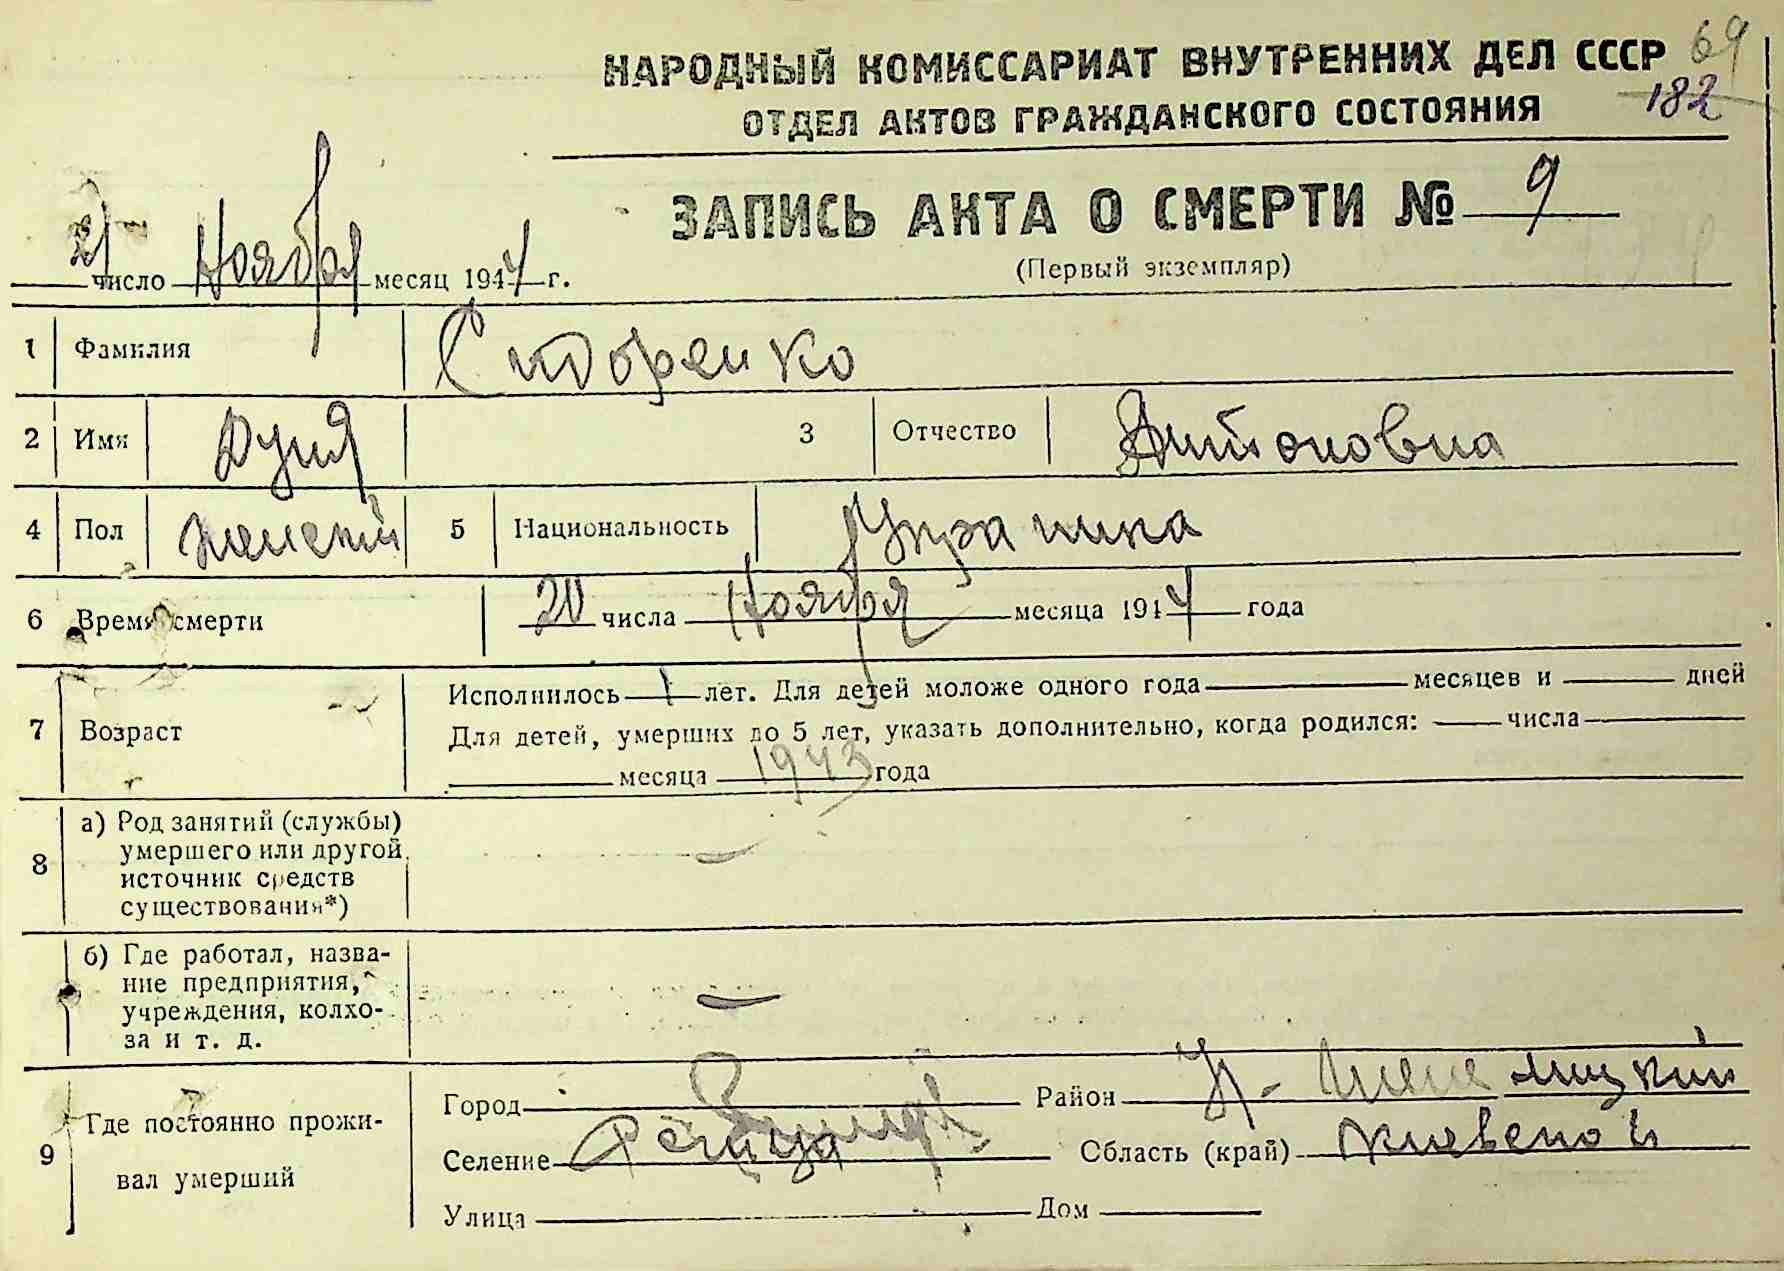 69
НАРОДНЫЙ КОМИССАРИАТ ВНУТРЕННИХ ДЕЛ СССР
182
ОТДЕЛ АКТОВ ГРАЖДАНСКОГО СОСТОЯНИЯ
ЗАПИСЬ АКТА О СМЕРТИ № 9
(Первый экземпляр)
21 число Ноября месяц 1944 г.
1 Фамилия Сидоренко
2 Имя Дуня 3 Отчество Антоновна
4 Пол женский 5 Национальность Украинка
6 Время смерти 20 числа Ноября месяца 1944 года
7 Возраст
Исполнилось 1 лет. Для детей моложе одного года месяцев и дней
Для детей, умерших до 5 лет, указать дополнительно, когда родился: числа
месяца 1943 года
8 а) Род занятий (службы)
умершего или другой
источник средств
существования*) —
б) Где работал, назва-
ние предприятия,
учреждения, колхо-
за и т. д. —
9 Где постоянно прожи-
вал умерший
Город Район Хмельницкий
Селение Область (край) Киевской
Улица Дом